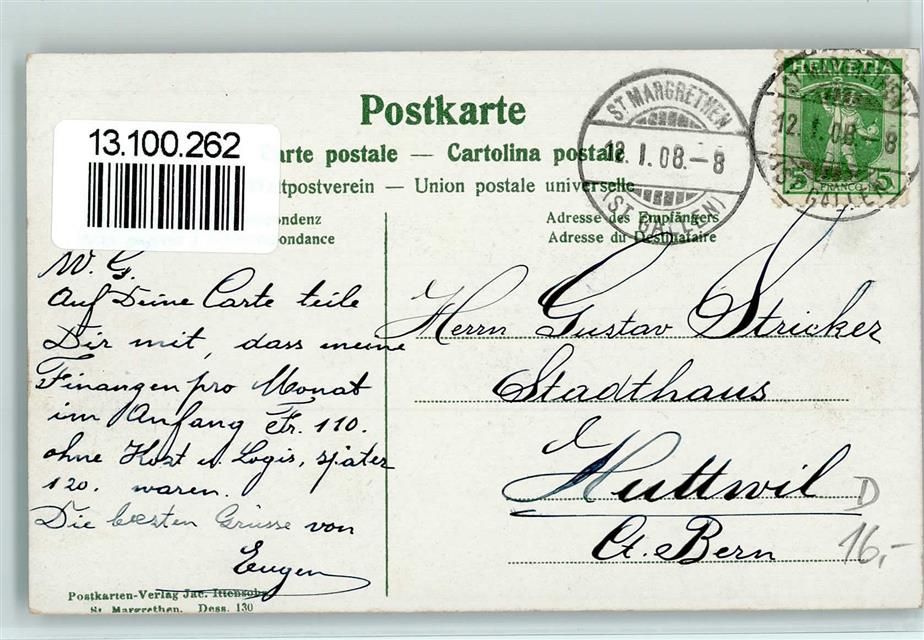 Postkarte
13.100.262
arte postale — Cartolina postale
ltpostverein — Union postale universelle
ondenz
pondance
Adresse des Empfängers
Adresse du Destinataire
ST. MARGRETHEN
12. I. 08. – 8
(ST. GALLEN)
HELVETIA
5 5
FRANCO
ST. MARGRETHEN
12. I. 08. – 8
(ST. GALLEN)
W. G.
Auf Deine Carte teile
Dir mit, dass meine
Finanzen pro Monat
im Anfang Fr. 110.
ohne Kost u. Logis, später
120. waren.
Die besten Grüsse von
Eugen
Herrn Gustav Stricker
Stadthaus
Huttwil
Ct. Bern
D
16,-
Postkarten-Verlag Jac. Ittensohn
St. Margrethen. Dess. 130